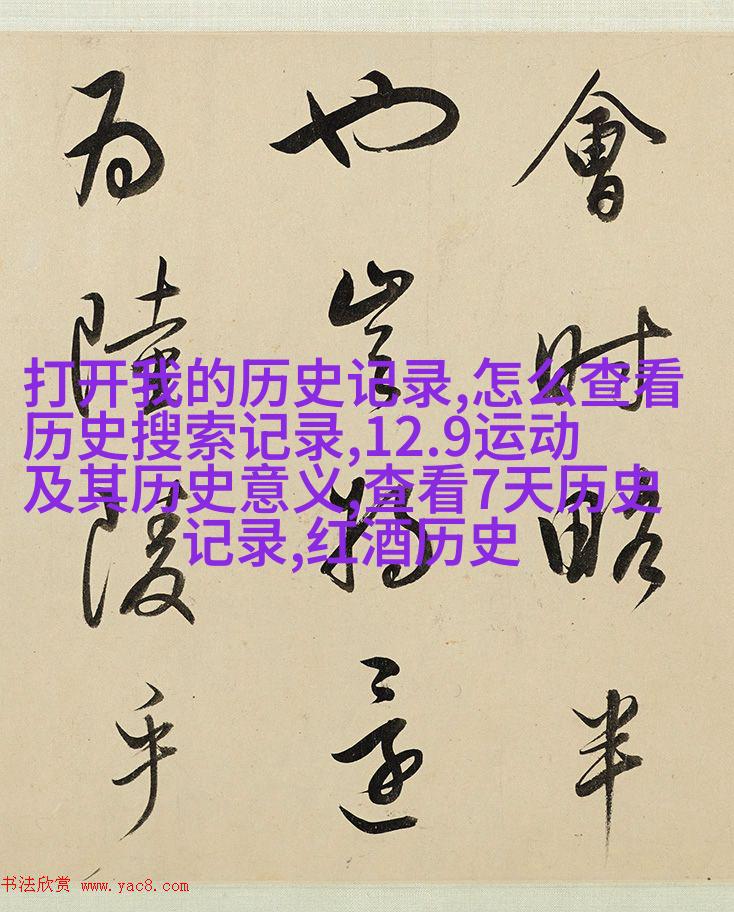 會時略半
也豈特還
為陸陵乎
打开我的历史记录,怎么查看
历史搜索记录,12.9运动
及其历史意义,查看7天历史
记录,红酒历史
书法欣赏 www.yac8.com